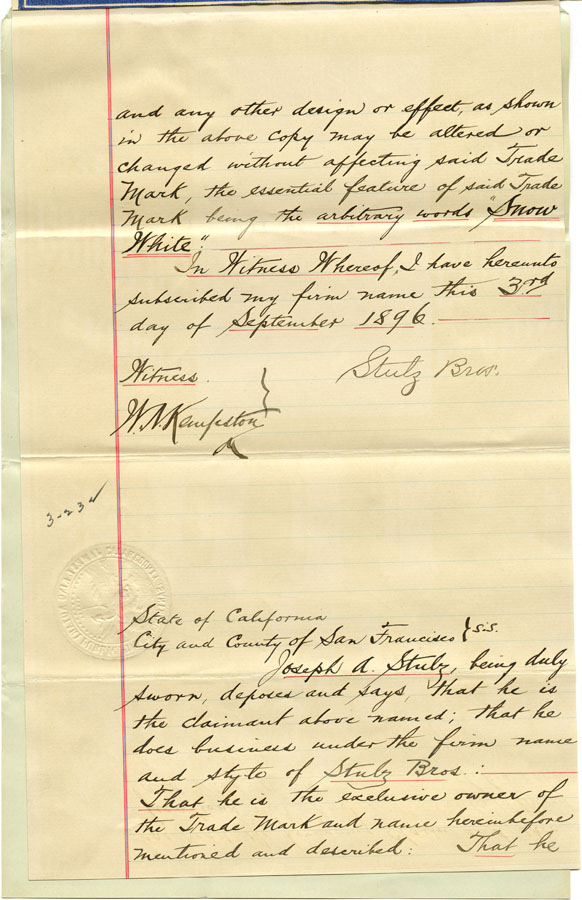 and any other design or effect, as shown
in the above copy may be altered or
changed without affecting said Trade
Mark, the essential feature of said Trade
Mark being the arbitrary words "Snow
White".
In Witness Whereof, I have hereunto
subscribed my firm name this 3rd
day of September 1896.
Witness. }
Stulz Bros.
W. N. Kempston
3-234
State of California
City and County of San Francisco } S.S.
Joseph A. Stulz, being duly
sworn, deposes and says, that he is
the claimant above named; that he
does business under the firm name
and style of Stulz Bros.:
That he is the exclusive owner of
the Trade Mark and name hereinbefore
mentioned and described: That he